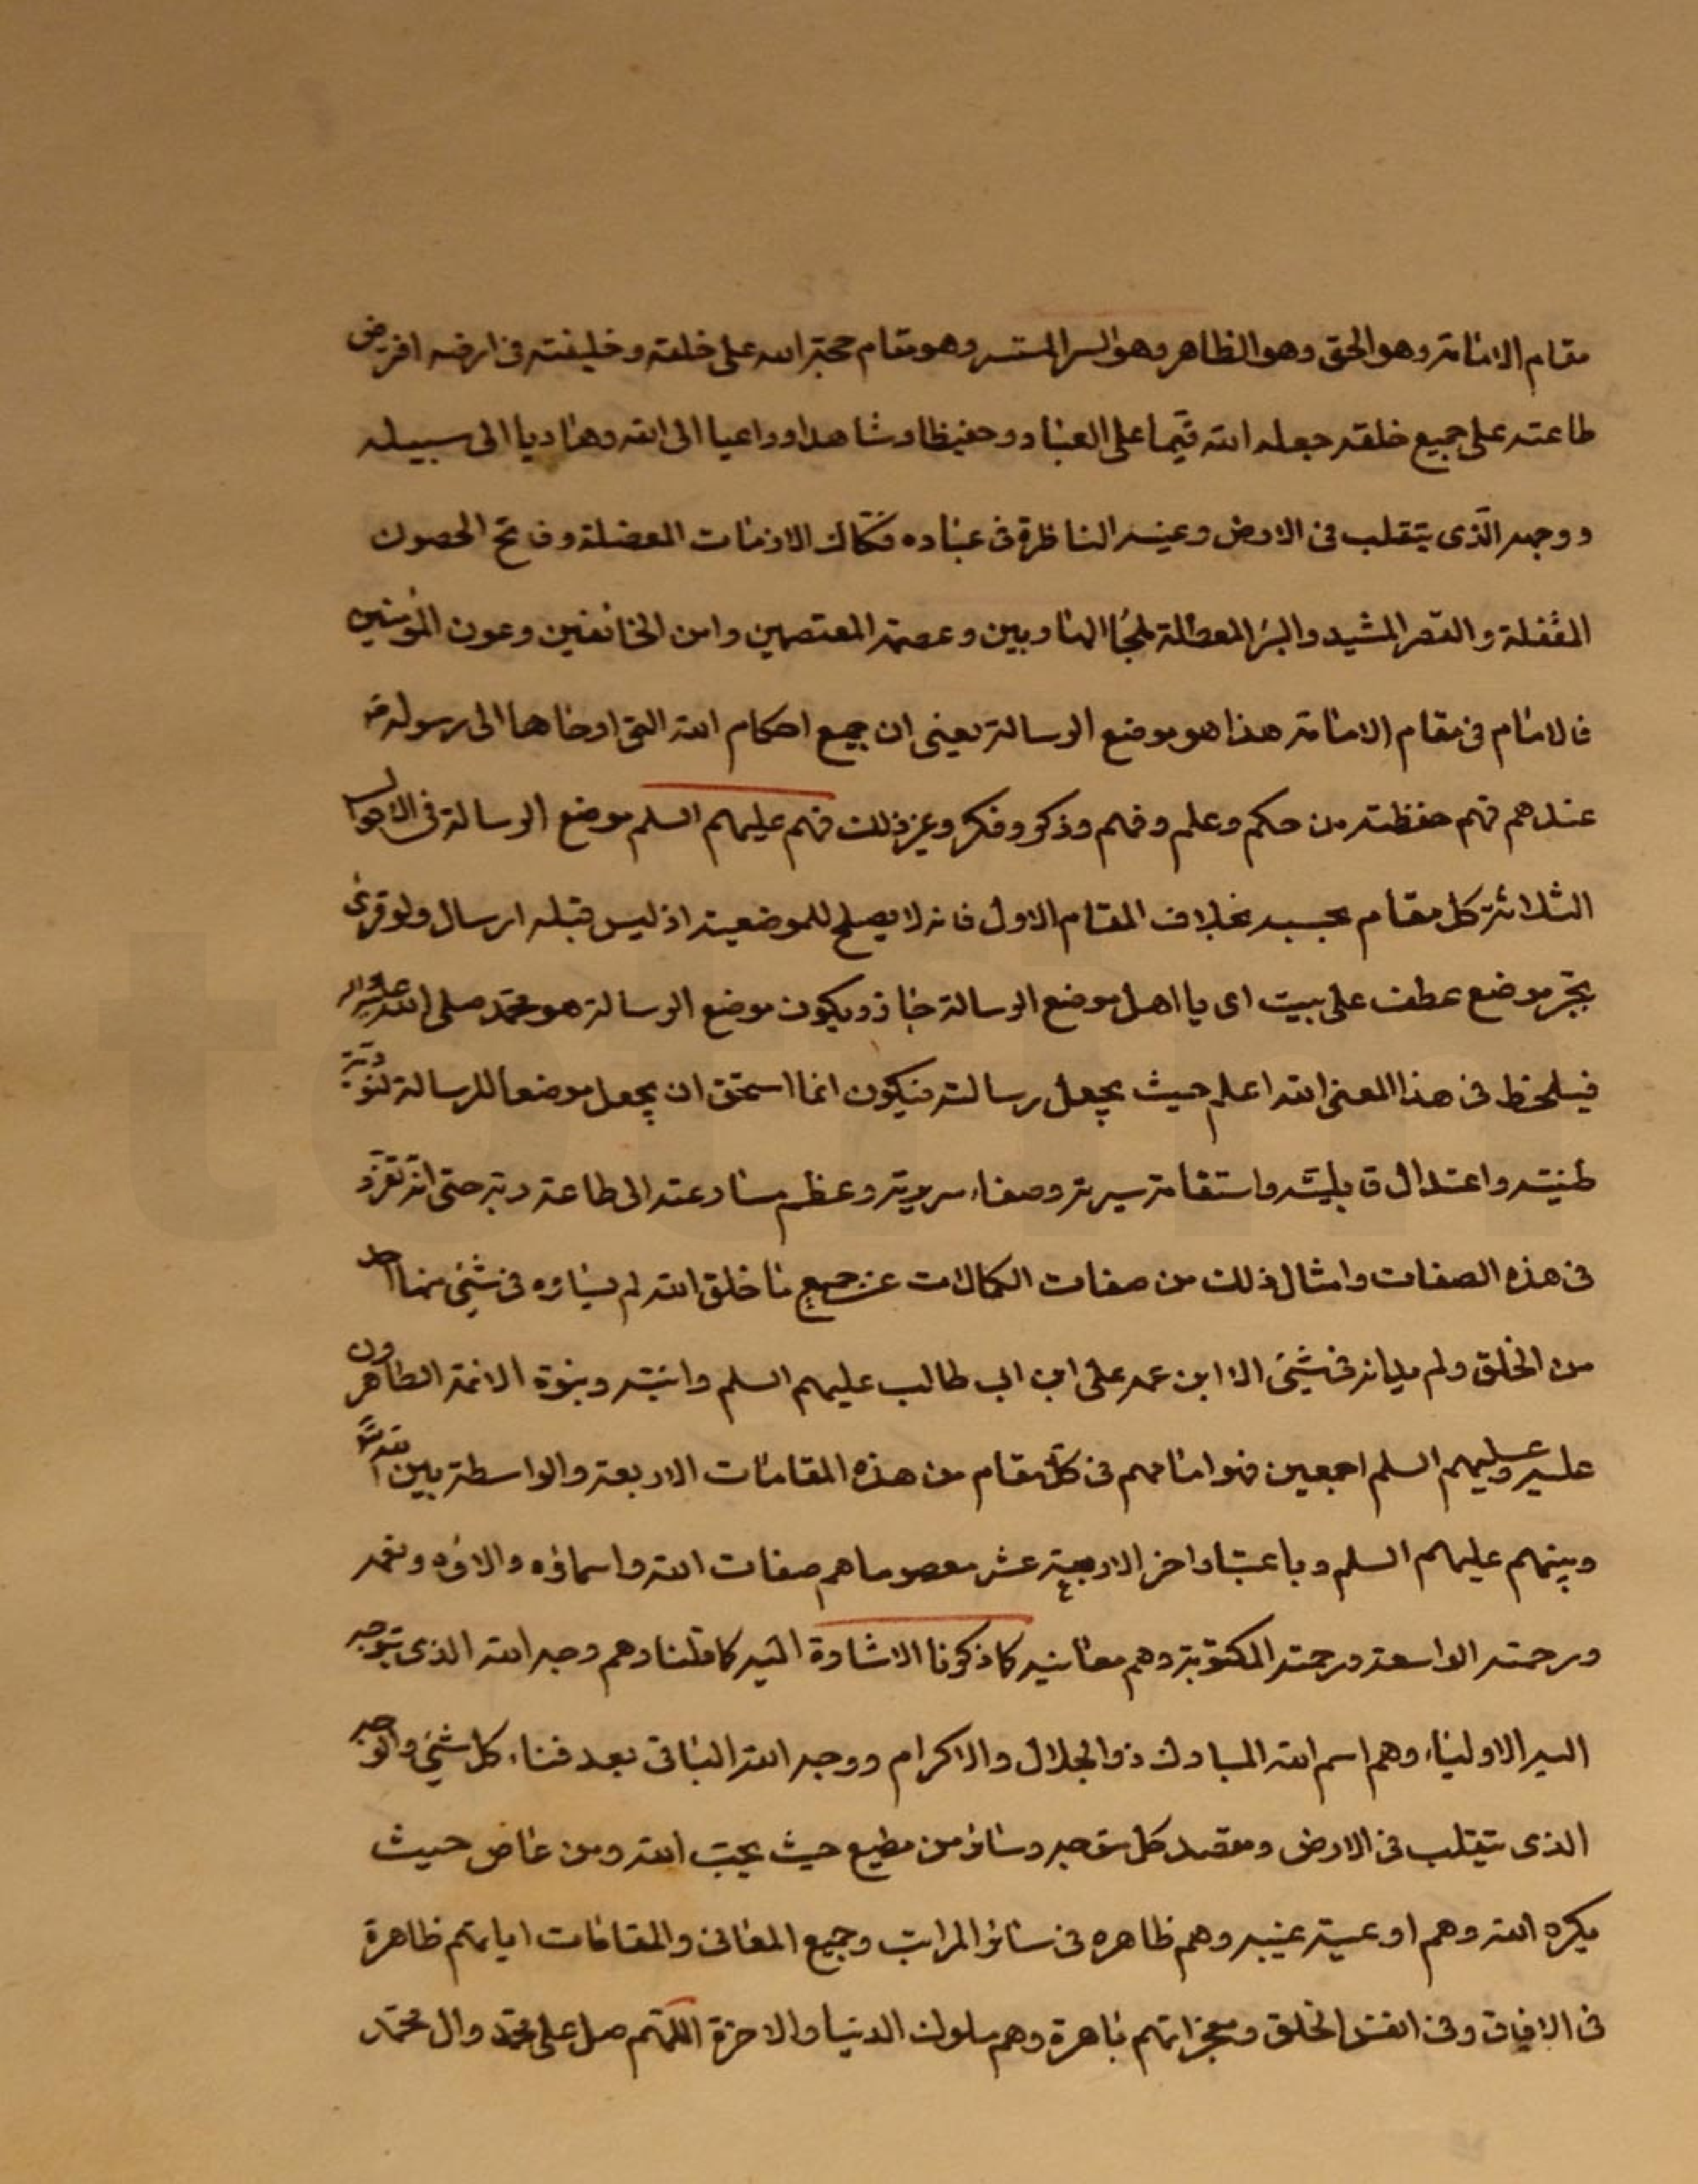 مقام الامامة وهو الحق وهو الظاهر وهو السر المستسر وهو مقام حجة الله على خلقه وخليفته فى ارضه افترض
طاعته على جميع خلقه جعله الله قيّما على العباد وحفيظا وشاهدا وداعيا الى الله وهاديا الى سبيله
ووجهه الّذى يتقلب فى الارض وعينه الناظرة فى عباده فكّاك الازمات المعضلة وفاتح الحصون
المقفلة والقصر المشيد والبئر المعطلة ملجأ الهاربين وعصمة المعتصمين وامن الخائفين وعون المؤمنين
فالامام فى مقام الامامة هذا هو موضع الرسالة يعنى ان جميع احكام الله التى اوحاها الى رسوله ص
عندهم فهم حفظته من حكم وعلم وفهم وذكر وفكر وغير ذلك فهم عليهم السلم موضع الرسالة فى الاحوال
الثلاثة كل مقام بحسبه بخلاف المقام الاول فانه لا يصلح للموضعية اذ ليس قبله ارسال ولو قرئ
بجرّ موضع عطف على بيت اى يا اهل موضع الرسالة جاز ويكون موضع الرسالة هو محمّد صلى الله عليه واله
فيلحظ فى هذا المعنى الله اعلم حيث يجعل رسالته فيكون انما استحق ان يجعل موضعا للرسالة لنوريّة
طينته واعتدال قابليته واستقامة سيرته وصفاء سريرته وعظم مسارعته الى طاعة ربّه حتى انّه تفرّد
فى هذه الصفات وامثال ذلك من صفات الكمالات عن جميع ما خلق الله لم يساوه فى شيئ منها احد
من الخلق ولم يدانه فى شيئ الا ابن عمه على ابن ابى طالب عليهم السلم وابنته وبنوه الائمة الطاهرون
عليه وعليهم السلم اجمعين فهو امامهم فى كلّ مقام من هذه المقامات الاربعة والواسطة بين الله تعالى
وبينهم عليهم السلم وباعتبار اخر الاربعة عشر معصوما هم صفات الله واسماؤه والاؤه ونعمه
ورحمته الواسعة ورحمته المكتوبة وهم معانيه كما ذكرنا الاشارة اليه كما قلنا وهم وجه الله الذى يتوجه
اليه الاولياء وهم اسم الله المبارك ذو الجلال والاكرام ووجه الله الباقى بعد فناء كل شيئ والوجه
الذى يتقلب فى الارض ومقصد كل متوجه وسائر من مطيع حيث يحبّ الله ومن عاص حيث
يكره الله وهم اوعية غيبه وهم ظاهره فى سائر المراتب وجميع المعانى والمقامات اياتهم ظاهرة
فى الافاق وفى انفس الخلق ومعجزاتهم باهرة وهم ملوك الدنيا والاخرة اللهّم صل على محمّد وال محمّد